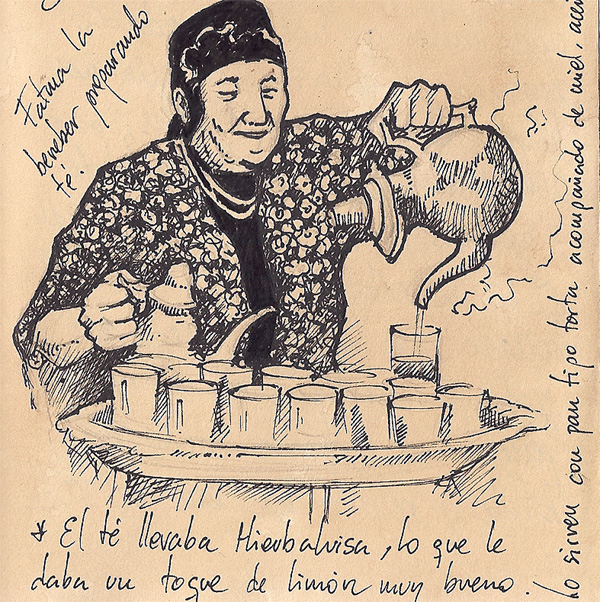 Fatma la
bereber preparando
té.
* El té llevaba Hierbalvisa, lo que le
daba un toque de limón muy bueno.
Lo sirven con pan tipo torta acompañado de miel, acei